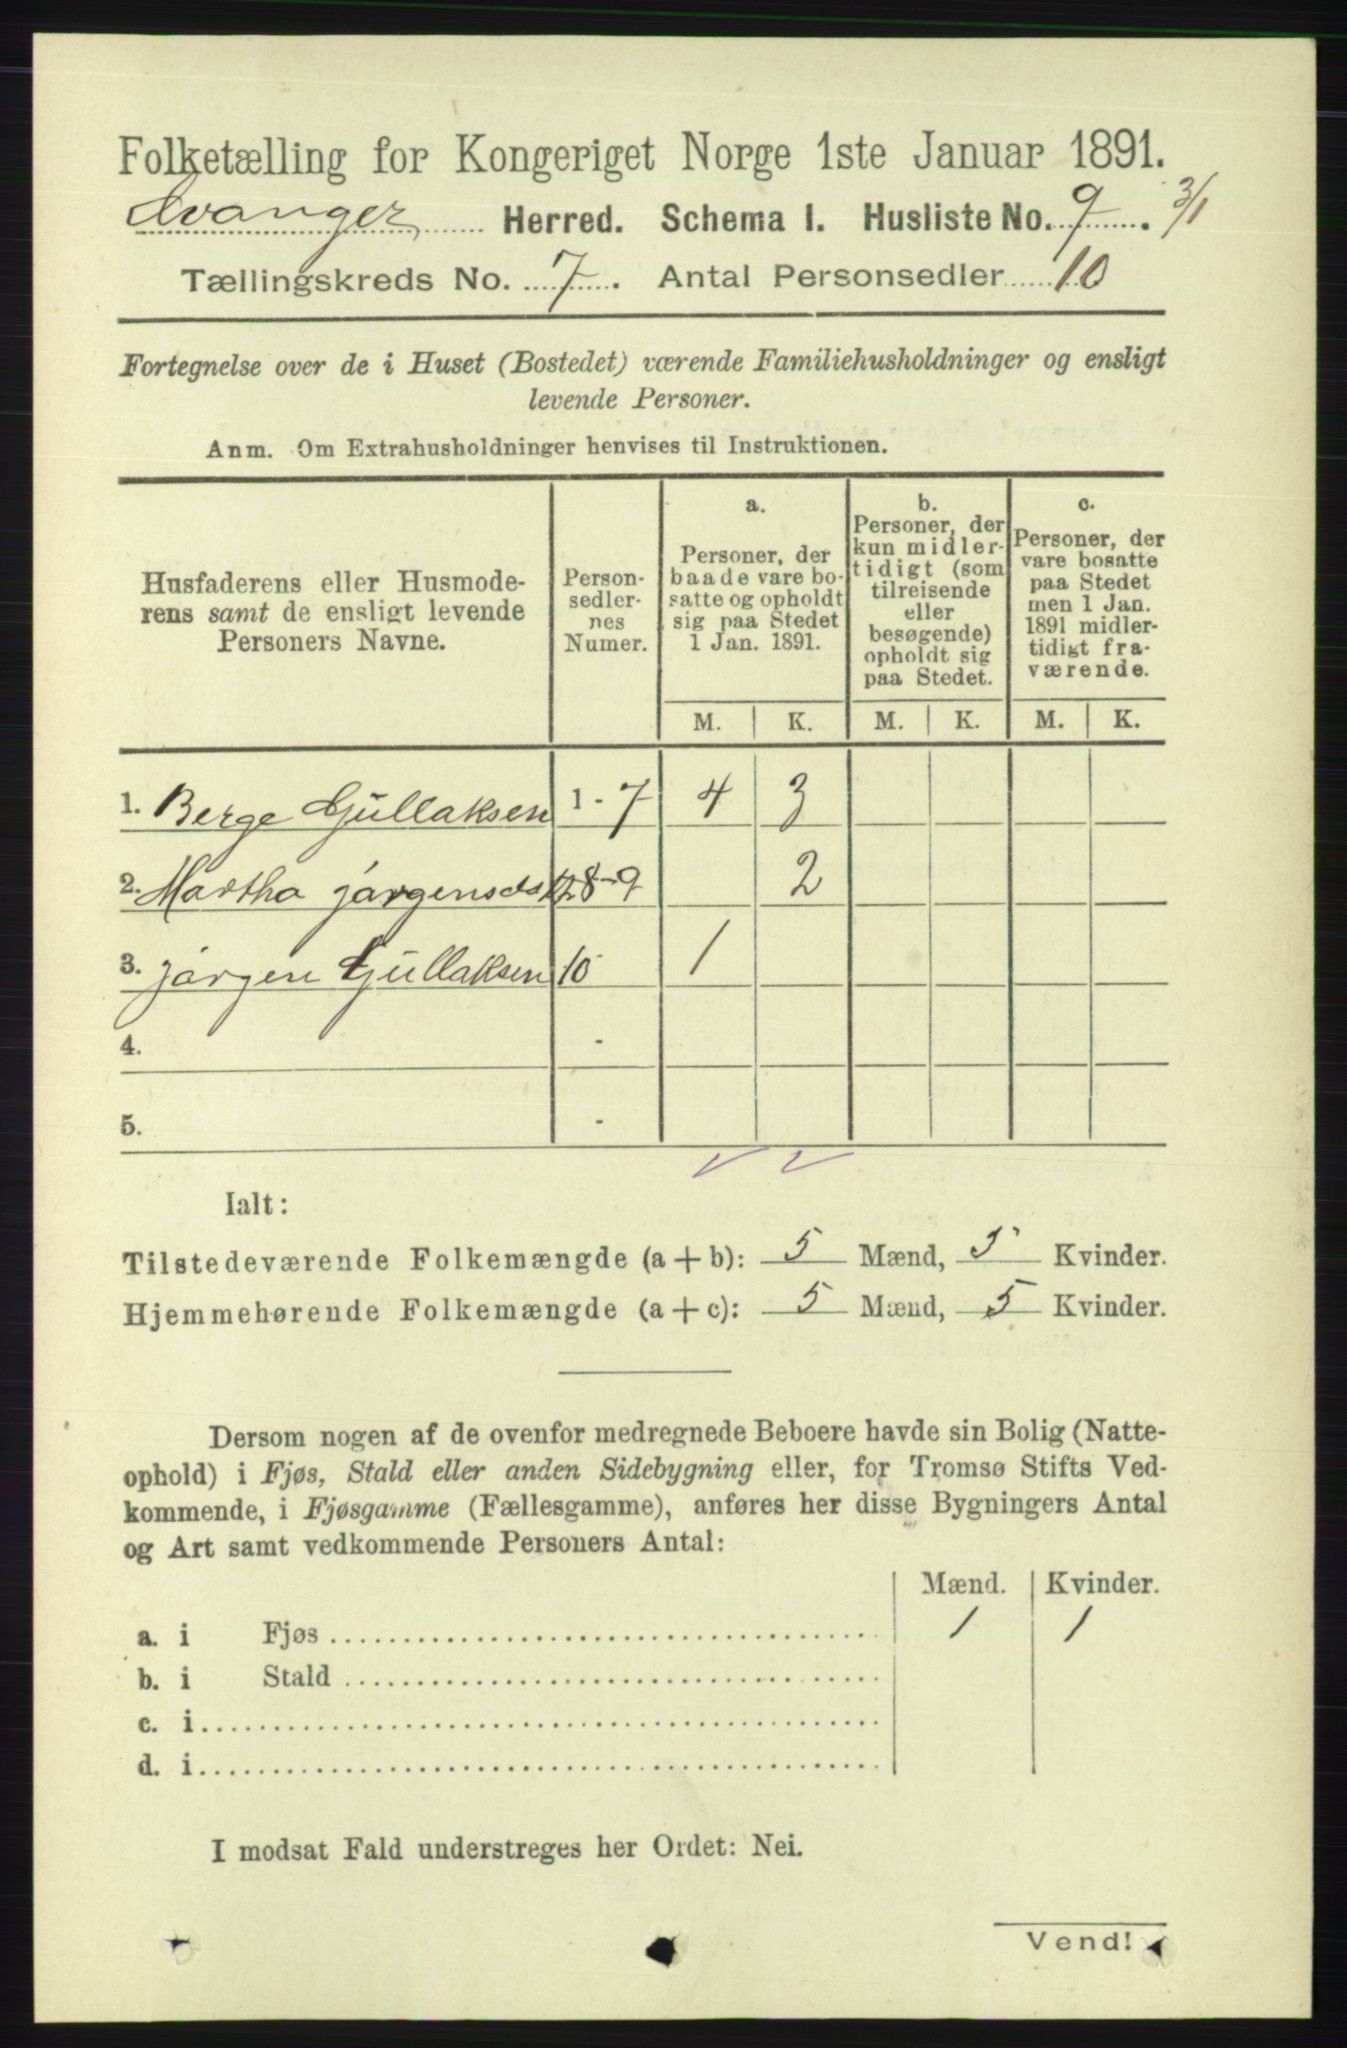 Folketælling for Kongeriget Norge 1ste Januar 1891.
Evanger Herred. Schema I. Husliste No. 9. 3/1
Tællingskreds No. 7. Antal Personsedler 10
Fortegnelse over de i Huset (Bostedet) værende Familiehusholdninger og ensligt
levende Personer.
Anm. Om Extrahusholdninger henvises til Instruktionen.
Husfaderens eller Husmode-
rens samt de ensligt levende
Personers Navne.
Person-
sedler-
nes
Numer.
a.
Personer, der
baade vare bo-
satte og opholdt
sig paa Stedet
1 Jan. 1891.
b.
Personer, der
kun midler-
tidigt (som
tilreisende
eller
besøgende)
opholdt sig
paa Stedet.
c.
Personer, der
vare bosatte
paa Stedet
men 1 Jan.
1891 midler-
tidigt fra-
værende.
M. K. M. K. M. K.
1. Berge Gjullaksen 1 - 7 4 3
2. Martha Jørgensdtr 8-9 2
3. Jørgen Gjullaksen 10 1
4. -
5. -
Ialt:
Tilstedeværende Folkemængde (a + b): 5 Mænd, 5 Kvinder.
Hjemmehørende Folkemængde (a + c): 5 Mænd, 5 Kvinder.
Dersom nogen af de ovenfor medregnede Beboere havde sin Bolig (Natte-
ophold) i Fjøs, Stald eller anden Sidebygning eller, for Tromsø Stifts Ved-
kommende, i Fjøsgamme (Fællesgamme), anføres her disse Bygningers Antal
og Art samt vedkommende Personers Antal:
Mænd. Kvinder.
a. i Fjøs 1 1
b. i Stald
c. i
d. i
I modsat Fald understreges her Ordet: Nei.
Vend!